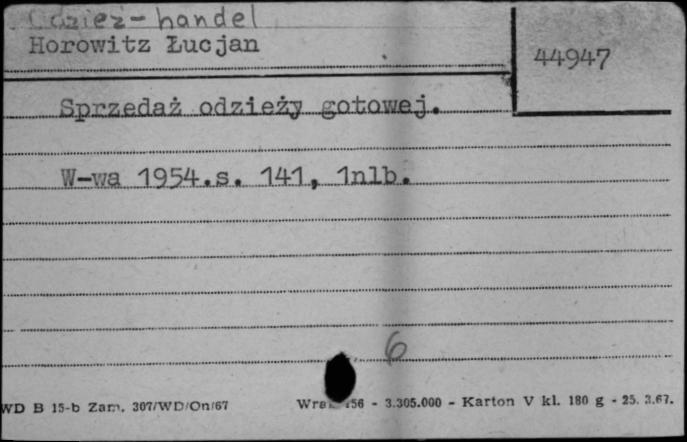 Odzież - handel
Horowitz Łucjan
44947
Sprzedaż odzieży gotowej.
W-wa 1954.s. 141, 1nlb.
6
WD B 15-b Zam. 307/WD/On/67 56 - 3.305.000 - Karton V kl. 180 g - 25. 3.67.